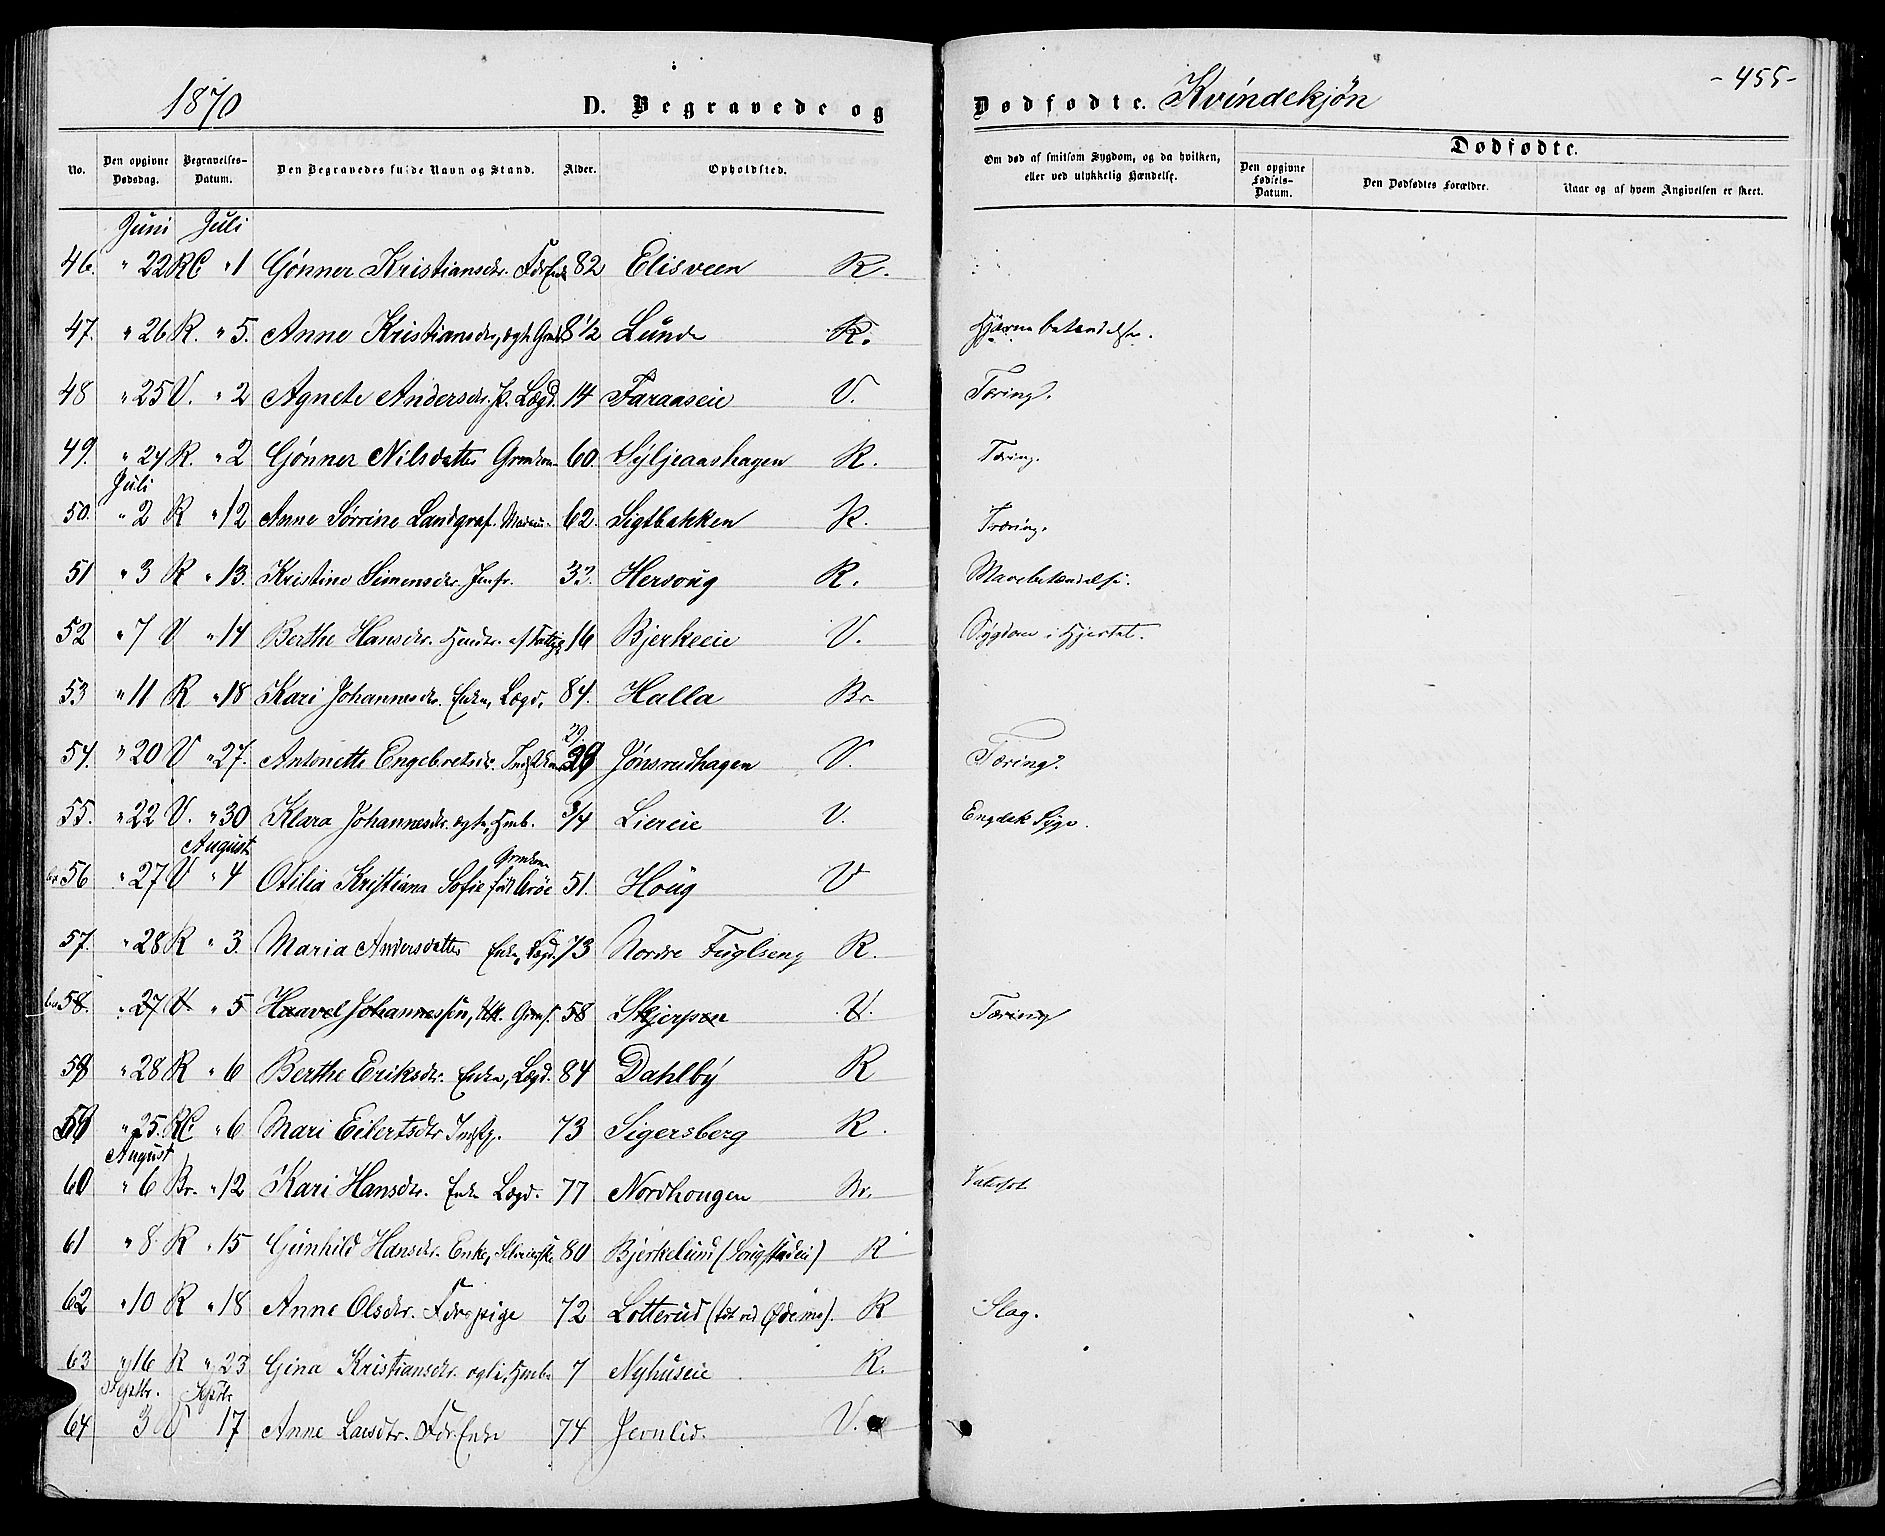 1870 D. Begravede og Dødfødte. Kvindekjøn -455-
No. Den opgivne Dødsdag. Begravelses-Datum. Den Begravedes fulde Navn og Stand. Alder. Opholdsted. Om død af smitsom Sygdom, og da hvilken, eller ved ulykkelig Hændelse. Dødfødte. Den opgivne Fødsels-Datum. Den Dødfødtes Forældre. Naar og af hvem Angivelsen er skeet.
Juni Juli
46. " 22 RC " 1 Gønner Kristiansdtr. FdrEnke 82 Elisveen R.
47. " 26 R. " 5. Anne Kristiansdtr, ægte 8 1/2 Lunde R. Hjærnebetændelse.
48 " 25 V. " 2 Agnete Andersdtr. p. Lægd. 14 Faraaseie V. Tæring.
49. " 24 R. " 2 Gønner Nilsdatter Grmdkone 60. Syljeaashagen R. Tæring.
Juli
50. " 2 R " 12 Anne Sørrine Landgraf. Madam 62. Sigtbakken R. Tæring.
51 " 3 R " 13. Kristine Simensdtr. Jmfr. 33. Hersoug R. Mavebetændelse.
52 " 7 V " 14 Berthe Hansdtr. af Fattigv. 16 Bjerkeeie V. Sygdom i Hjertet.
53 " 11 R " 18 Kari Johannesdtr. Enke, Lægd. 84. Halla Br.
29.
54. " 20 V " 27. Antonette Engebretsdtr. 29 Jønsrudhagen V. Tæring.
55. " 22 V. " 30 Klara Johannesdtr. ægte, Hmb. 3/4 Liereie V. Engelsk Syge.
August Grmdkone
56 " 27 V " 4 Otilia Kristiana Sofie født Krøe 51. Houg V
57. " 28 R " 3. Maria Andersdatter Enke, Lægd. 73 Nordre Fuglseng R.
58. " 27 V " 5 Haavel Johannessen, Uk. Grmf. 58 Skjerpen V. Tæring
58 " 28 R " 6 Berthe Eriksdtr. Enke, Lægd. 84 Dahlby R
59 " 25. RC " 6 Mari Eilertsdtr Indstp. 73 Sigersberg R.
August
60 " 6 Br. " 12 Kari Hansdtr. Enke Lægd. 77 Nordhougen Br.
61 " 8 R " 15 Gunhild Hansdtr. Enke, 80 Bjerkelund (Sougstadeie) R
62 " 10 R " 18 Anne Olsdtr. Fdrspige 72 Lotterud (død ved Ødemo). R Slag.
63 " 16 R " 23 Gina Kristiansdtr. ægte, Hmb. 7 Nyhuseie R.
Septbr. Septbr
64 3 V 17 Anne Larsdtr. FdrEnke 74 Jernlid. V.